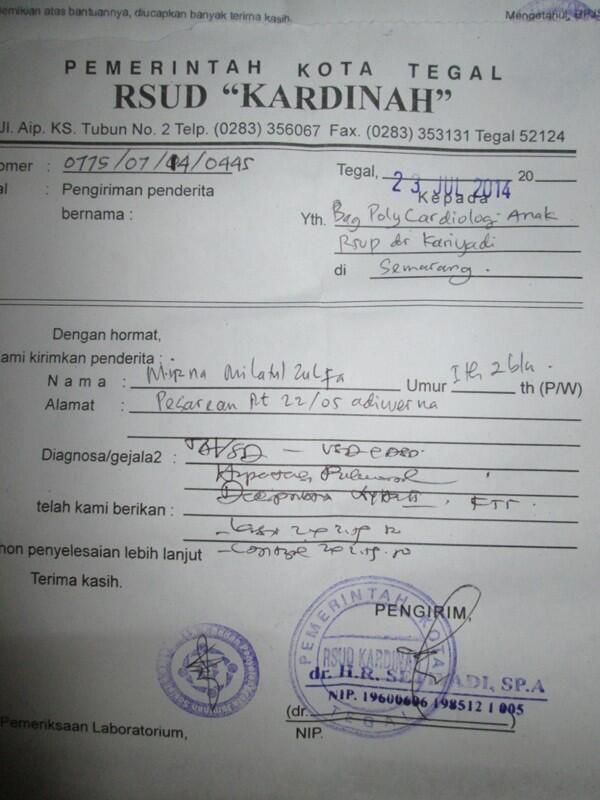 emikian atas bantuannya, diucapkan banyak terima kasih.
Mengetahui, BPJS
PEMERINTAH KOTA TEGAL
RSUD “KARDINAH”
Jl. Aip. KS. Tubun No. 2 Telp. (0283) 356067 Fax. (0283) 353131 Tegal 52124
omer : 0775/07/14/0445
Tegal, 23 JUL 2014 20
al : Pengiriman penderita
Kepada
bernama :
Yth. Bag Poly Cardiologi Anak
Rsup dr Kariyadi
di Semarang.
Dengan hormat,
ami kirimkan penderita :
Nama : Mirna Milatul Zulfa Umur 1th 2bln th (P/W)
Alamat : Pesarean Rt 22/05 adiwerna
Diagnosa/gejala2 : VSD
telah kami berikan :
hon penyelesaian lebih lanjut
Terima kasih.
PENGIRIM,
PEMERINTAH KOTA
RSUD KARDINAH
TEGAL
dr. H.R. SP.A
NIP. 19600606 198512 1 005
(dr. )
Pemeriksaan Laboratorium,
NIP.